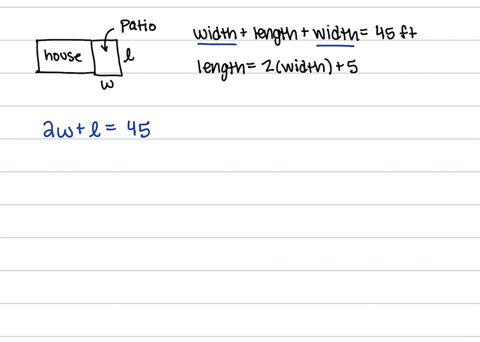 Patio
width + length + width = 45 ft
house
l
length = 2(width) + 5
w
2w + l = 45